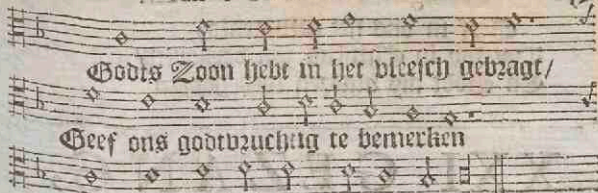 Godts Zoon hebt in het vleesch gebragt/
Geef ons godtvruchtig te bemerken